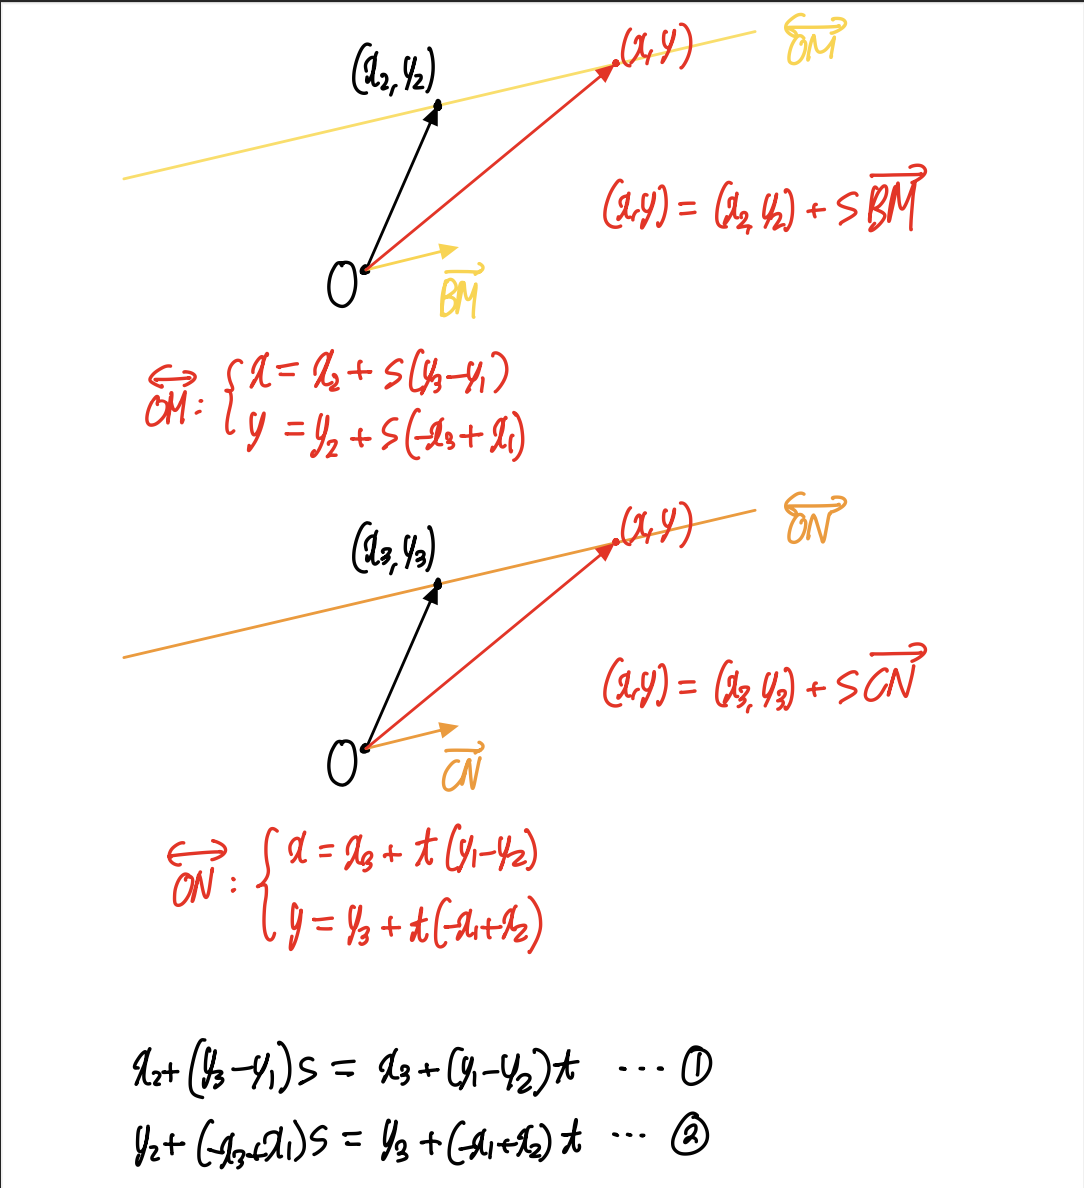 (x₂, y₂)
(x, y)
OM
(x, y) = (x₂, y₂) + s BM
O
BM
OM: { x = x₂ + s(y₃ - y₁)
y = y₂ + s(-x₃ + x₁)
(x₃, y₃)
(x, y)
ON
(x, y) = (x₃, y₃) + s CN
O
CN
ON: { x = x₃ + t(y₁ - y₂)
y = y₃ + t(-x₁ + x₂)
x₂ + (y₃ - y₁)s = x₃ + (y₁ - y₂)t ... ①
y₂ + (-x₃ + x₁)s = y₃ + (-x₁ + x₂)t ... ②